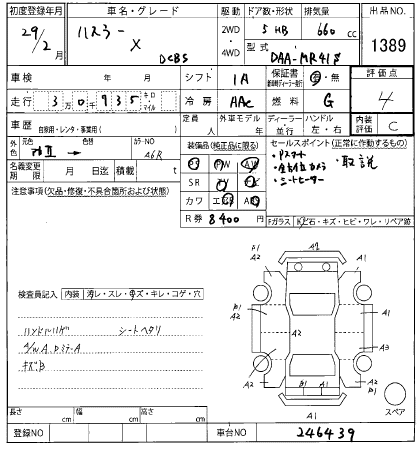 初度登録年月 車名・グレード 駆動 ドア数・形状 排気量 出品NO.
29/2月 ハスラー X DCBS 2WD 4WD 5 HB 660 cc 1389
型式 DAA-MR41S
車検 年 月 シフト IA 保証書 有・無 評価点
走行 3万0千935キロ・マイル 冷房 AAC 燃料 G 4
車歴 自家用・レンタ・事業用( ) 定員 人 外車モデル 年 ディーラー・並行 ハンドル 左・右 内装評価 C
外色 元色 色替 カラーNO
名義変更期限 月 日迄 積載 t
装備品(純正品に限る) セールスポイント(正常に作動するもの)
PS PW AW
SR TV
カワ エアB ABS
R券 8400 円
・Pスタート
・全方位カメラ ・取説
・シートヒーター
注意事項(欠品・修復・不具合箇所および状態)
Fガラス 飛石・キズ・ヒビ・ワレ・リペア跡
検査員記入 内装 汚レ・スレ・キズ・キレ・コゲ・穴
シートヘタリ
キズB
A2
A1
A2
A1
A2
A3
A2
A1
スペア
長さ cm 幅 cm 高さ cm
登録NO 車台NO 246439